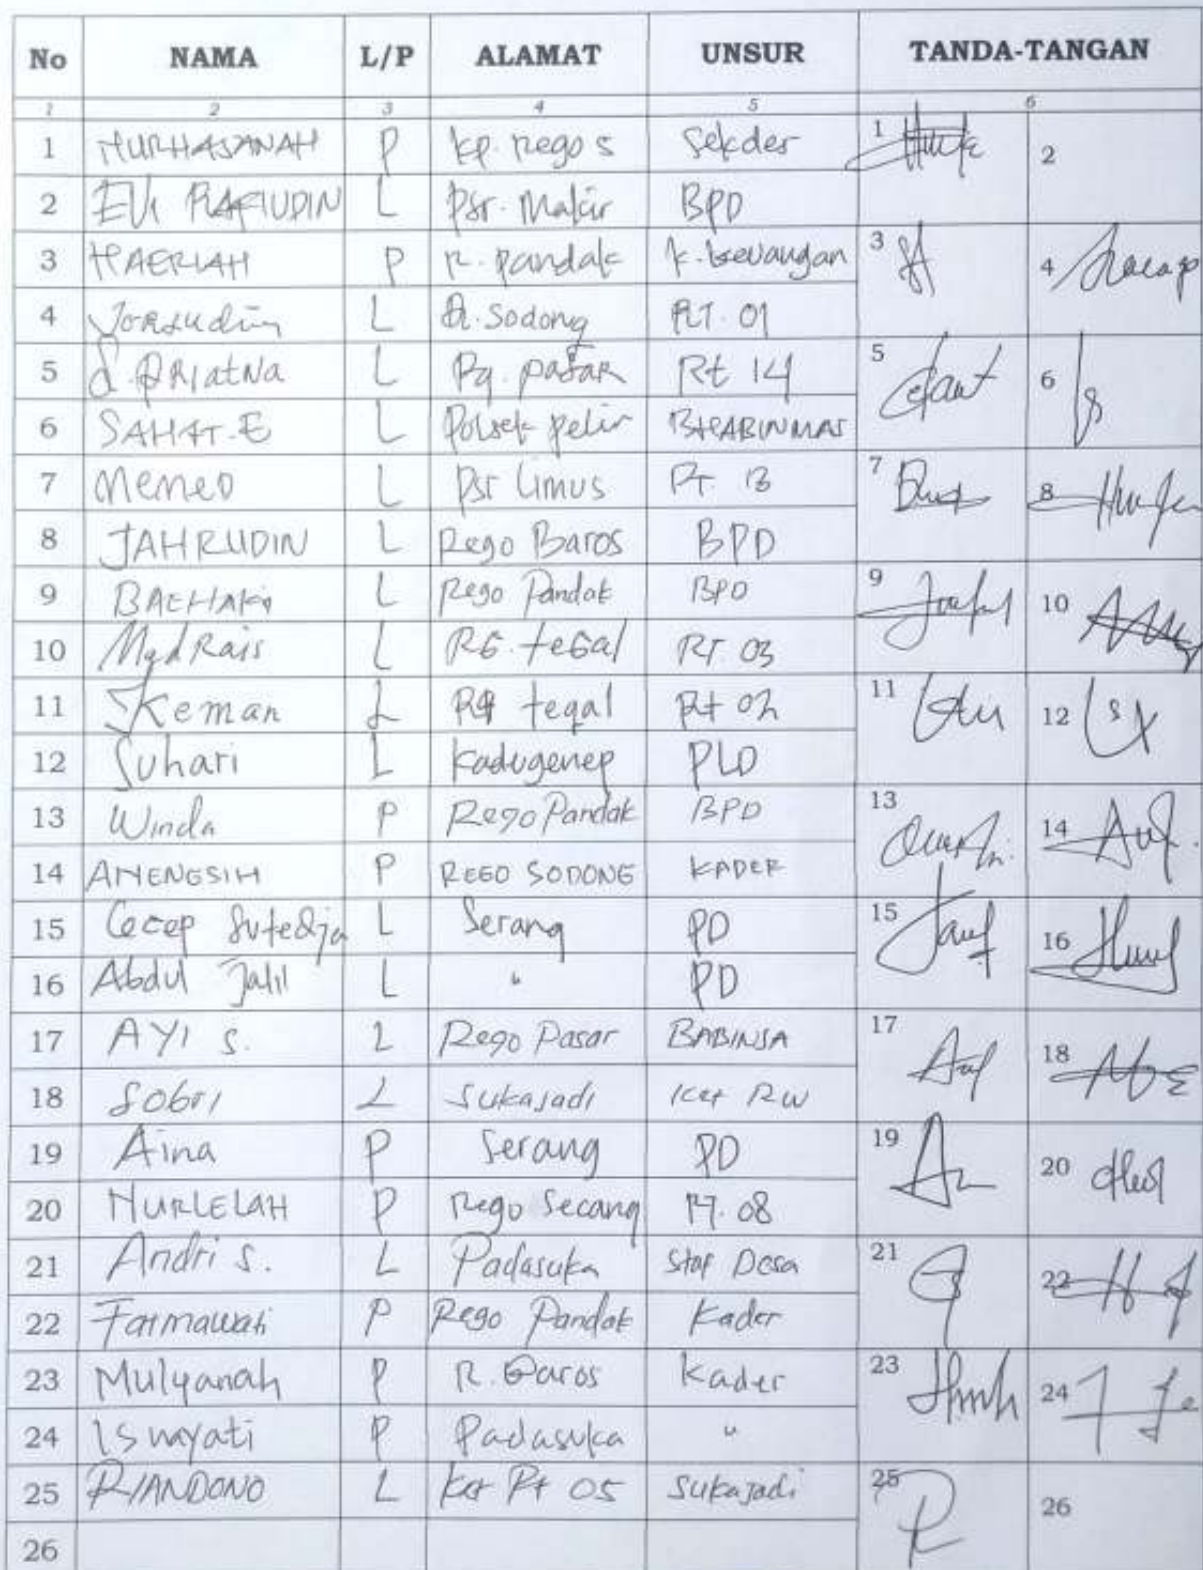 No NAMA L/P ALAMAT UNSUR TANDA-TANGAN
1 2 3 4 5 6
1 NURHASANAH P kp. Rego s Sekdes 1 2
2 RAFIUDIN L Psr. BPD
3 HAERIAH P R. pandak k. keuangan 3 4
4 L R. Sodong RT. 01
5 L Rg. pasar Rt 14 5 6
6 SAHAT. E L Polsek BHABINMAS
7 Memed L Psr Limus RT 13 7 8
8 JAHRUDIN L Rego Baros BPD
9 BAEHAKI L Rego Pandak BPD 9 10
10 Mad Rais L RG. teGal RT. 03
11 Keman L Rg tegal Rt 02 11 12
12 Suhari L Kadugenep PLD
13 Winda P Rego Pandak BPD 13 14
14 ANENGSIH P REGO SODONG KADER
15 Cecep Sutedja L Serang PD 15 16
16 Abdul Jalil L " PD
17 AYI S. L Rego Pasar BABINSA 17 18
18 Sobri L Sukajadi Ket RW
19 Aina P Serang PD 19 20
20 NURLELAH P Rego Secang RT. 08
21 Andri S. L Padasuka Staf Desa 21 22
22 Fatmawati P Rego Pandak Kader
23 Mulyanah P R. Baros Kader 23 24
24 Ismayati P Padasuka "
25 RIANDONO L Ket Rt 05 Sukajadi 25 26
26